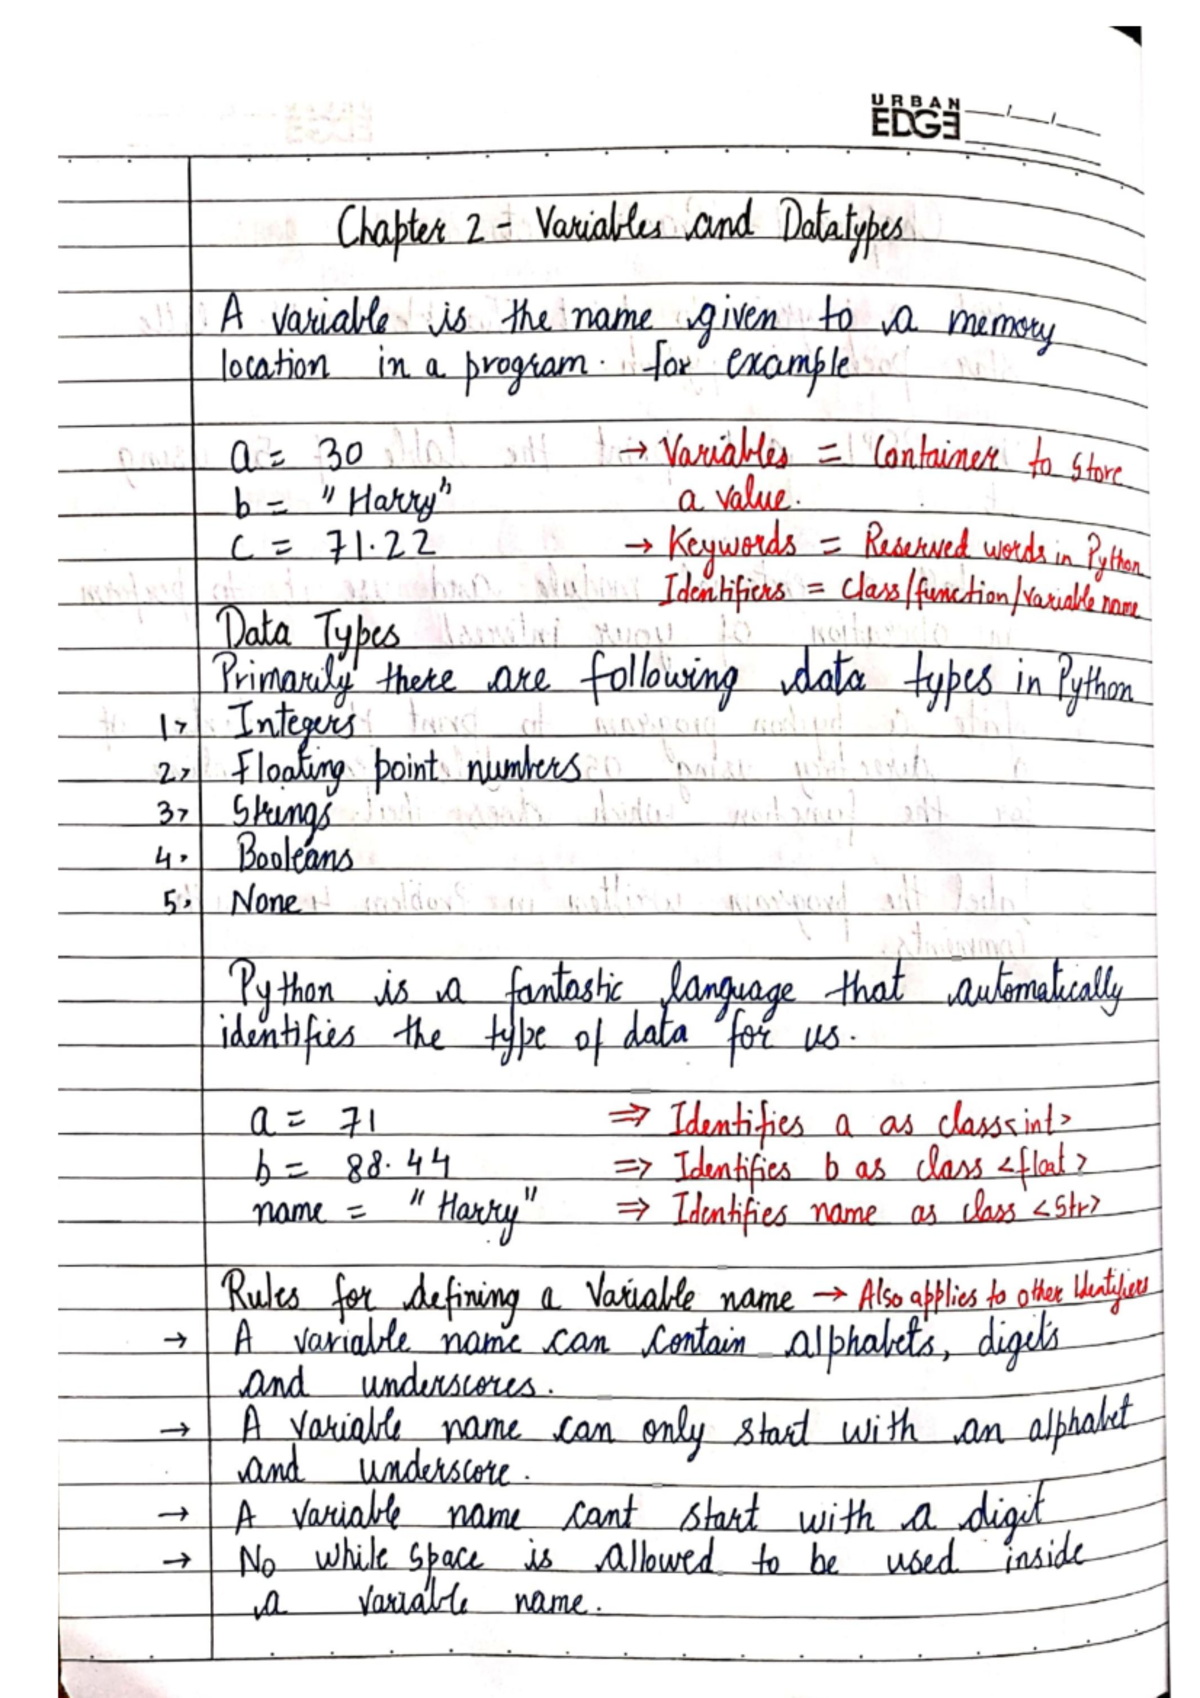 URBAN
EDGE
Chapter 2 - Variables and Datatypes
A variable is the name given to a memory
location in a program. for example
a = 30 → Variables = Container to store
b = "Harry" a value.
c = 71.22 → Keywords = Reserved words in Python
Identifiers = class/function/variable name
Data Types
Primarily there are following data types in Python
1> Integers
2> Floating point numbers
3> Strings
4> Booleans
5> None
Python is a fantastic language that automatically
identifies the type of data for us.
a = 71 ⇒ Identifies a as class<int>
b = 88.44 ⇒ Identifies b as class <float>
name = "Harry" ⇒ Identifies name as class <str>
Rules for defining a Variable name → Also applies to other Identifiers
→ A variable name can contain alphabets, digits
and underscores.
→ A variable name can only start with an alphabet
and underscore.
→ A variable name cant start with a digit
→ No while space is allowed to be used inside
a variable name.